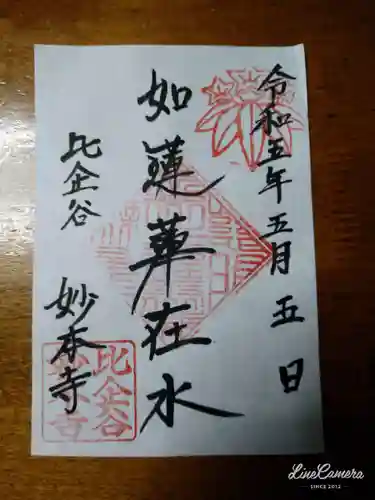 令和五年五月五日
如蓮華在水
比企谷
妙本寺
比企谷
妙本寺
LineCamera
SINCE 2012